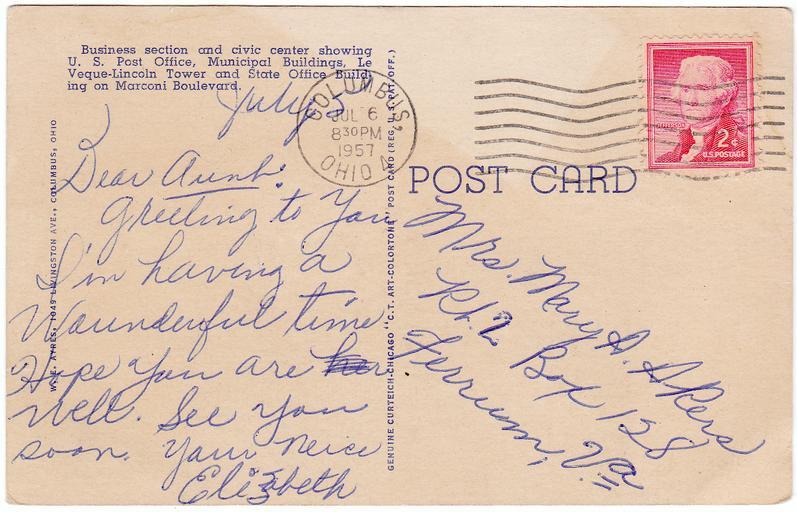 Business section and civic center showing
U. S. Post Office, Municipal Buildings, Le
Veque-Lincoln Tower and State Office Build-
ing on Marconi Boulevard.
July 5
COLUMBUS,
JUL 6
8 30 PM
1957
OHIO
JEFFERSON
2¢
U.S. POSTAGE
POST CARD
Dear Aunt:
Greeting to You
I'm having a
Waunderful time
Hope you are
well. See you
soon. Your neice
Elizabeth
Mrs. Mary A. Akers
Rt. 2 Box 158
Ferrum, Va
W. E. AYRES, 1049 LIVINGSTON AVE., COLUMBUS, OHIO
GENUINE CURTEICH-CHICAGO "C. T. ART-COLORTONE" POST CARD (REG. U. S. PAT. OFF.)